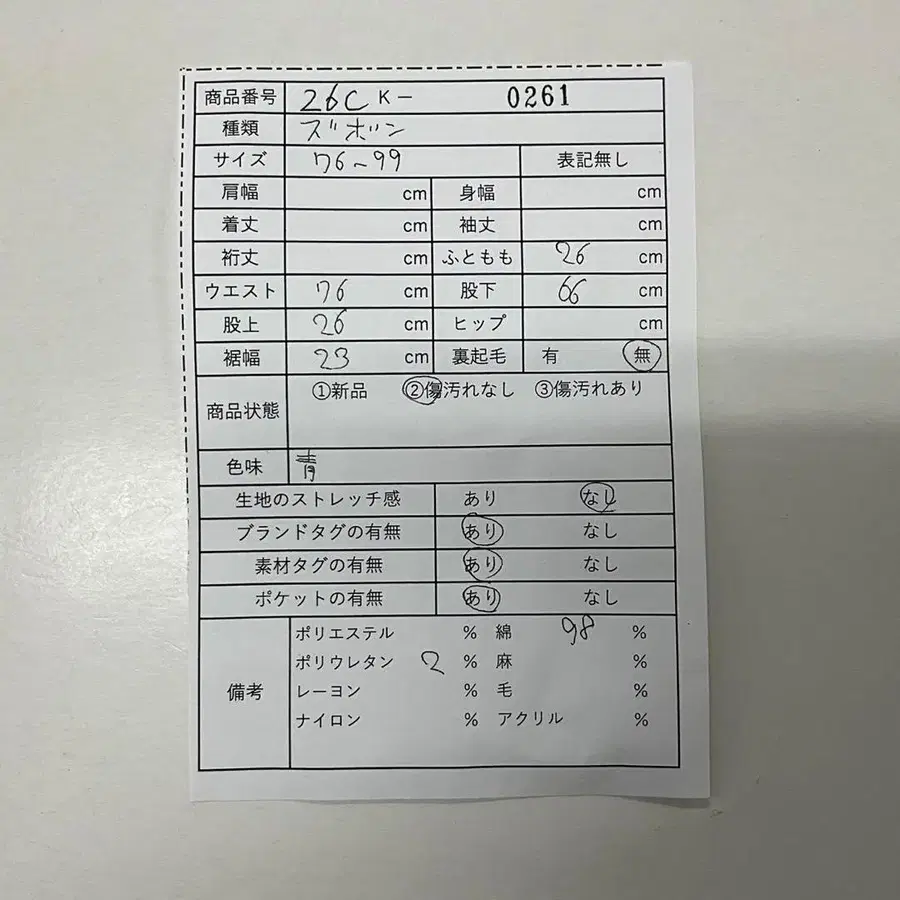 商品番号 26C K- 0261
種類 ズボン
サイズ 76~99 表記無し
肩幅 cm 身幅 cm
着丈 cm 袖丈 cm
裄丈 cm ふともも 26 cm
ウエスト 76 cm 股下 66 cm
股上 26 cm ヒップ cm
裾幅 23 cm 裏起毛 有 無
商品状態 ①新品 ②傷汚れなし ③傷汚れあり
色味 青
生地のストレッチ感 あり なし
ブランドタグの有無 あり なし
素材タグの有無 あり なし
ポケットの有無 あり なし
備考
ポリエステル % 綿 98 %
ポリウレタン 2 % 麻 %
レーヨン % 毛 %
ナイロン % アクリル %